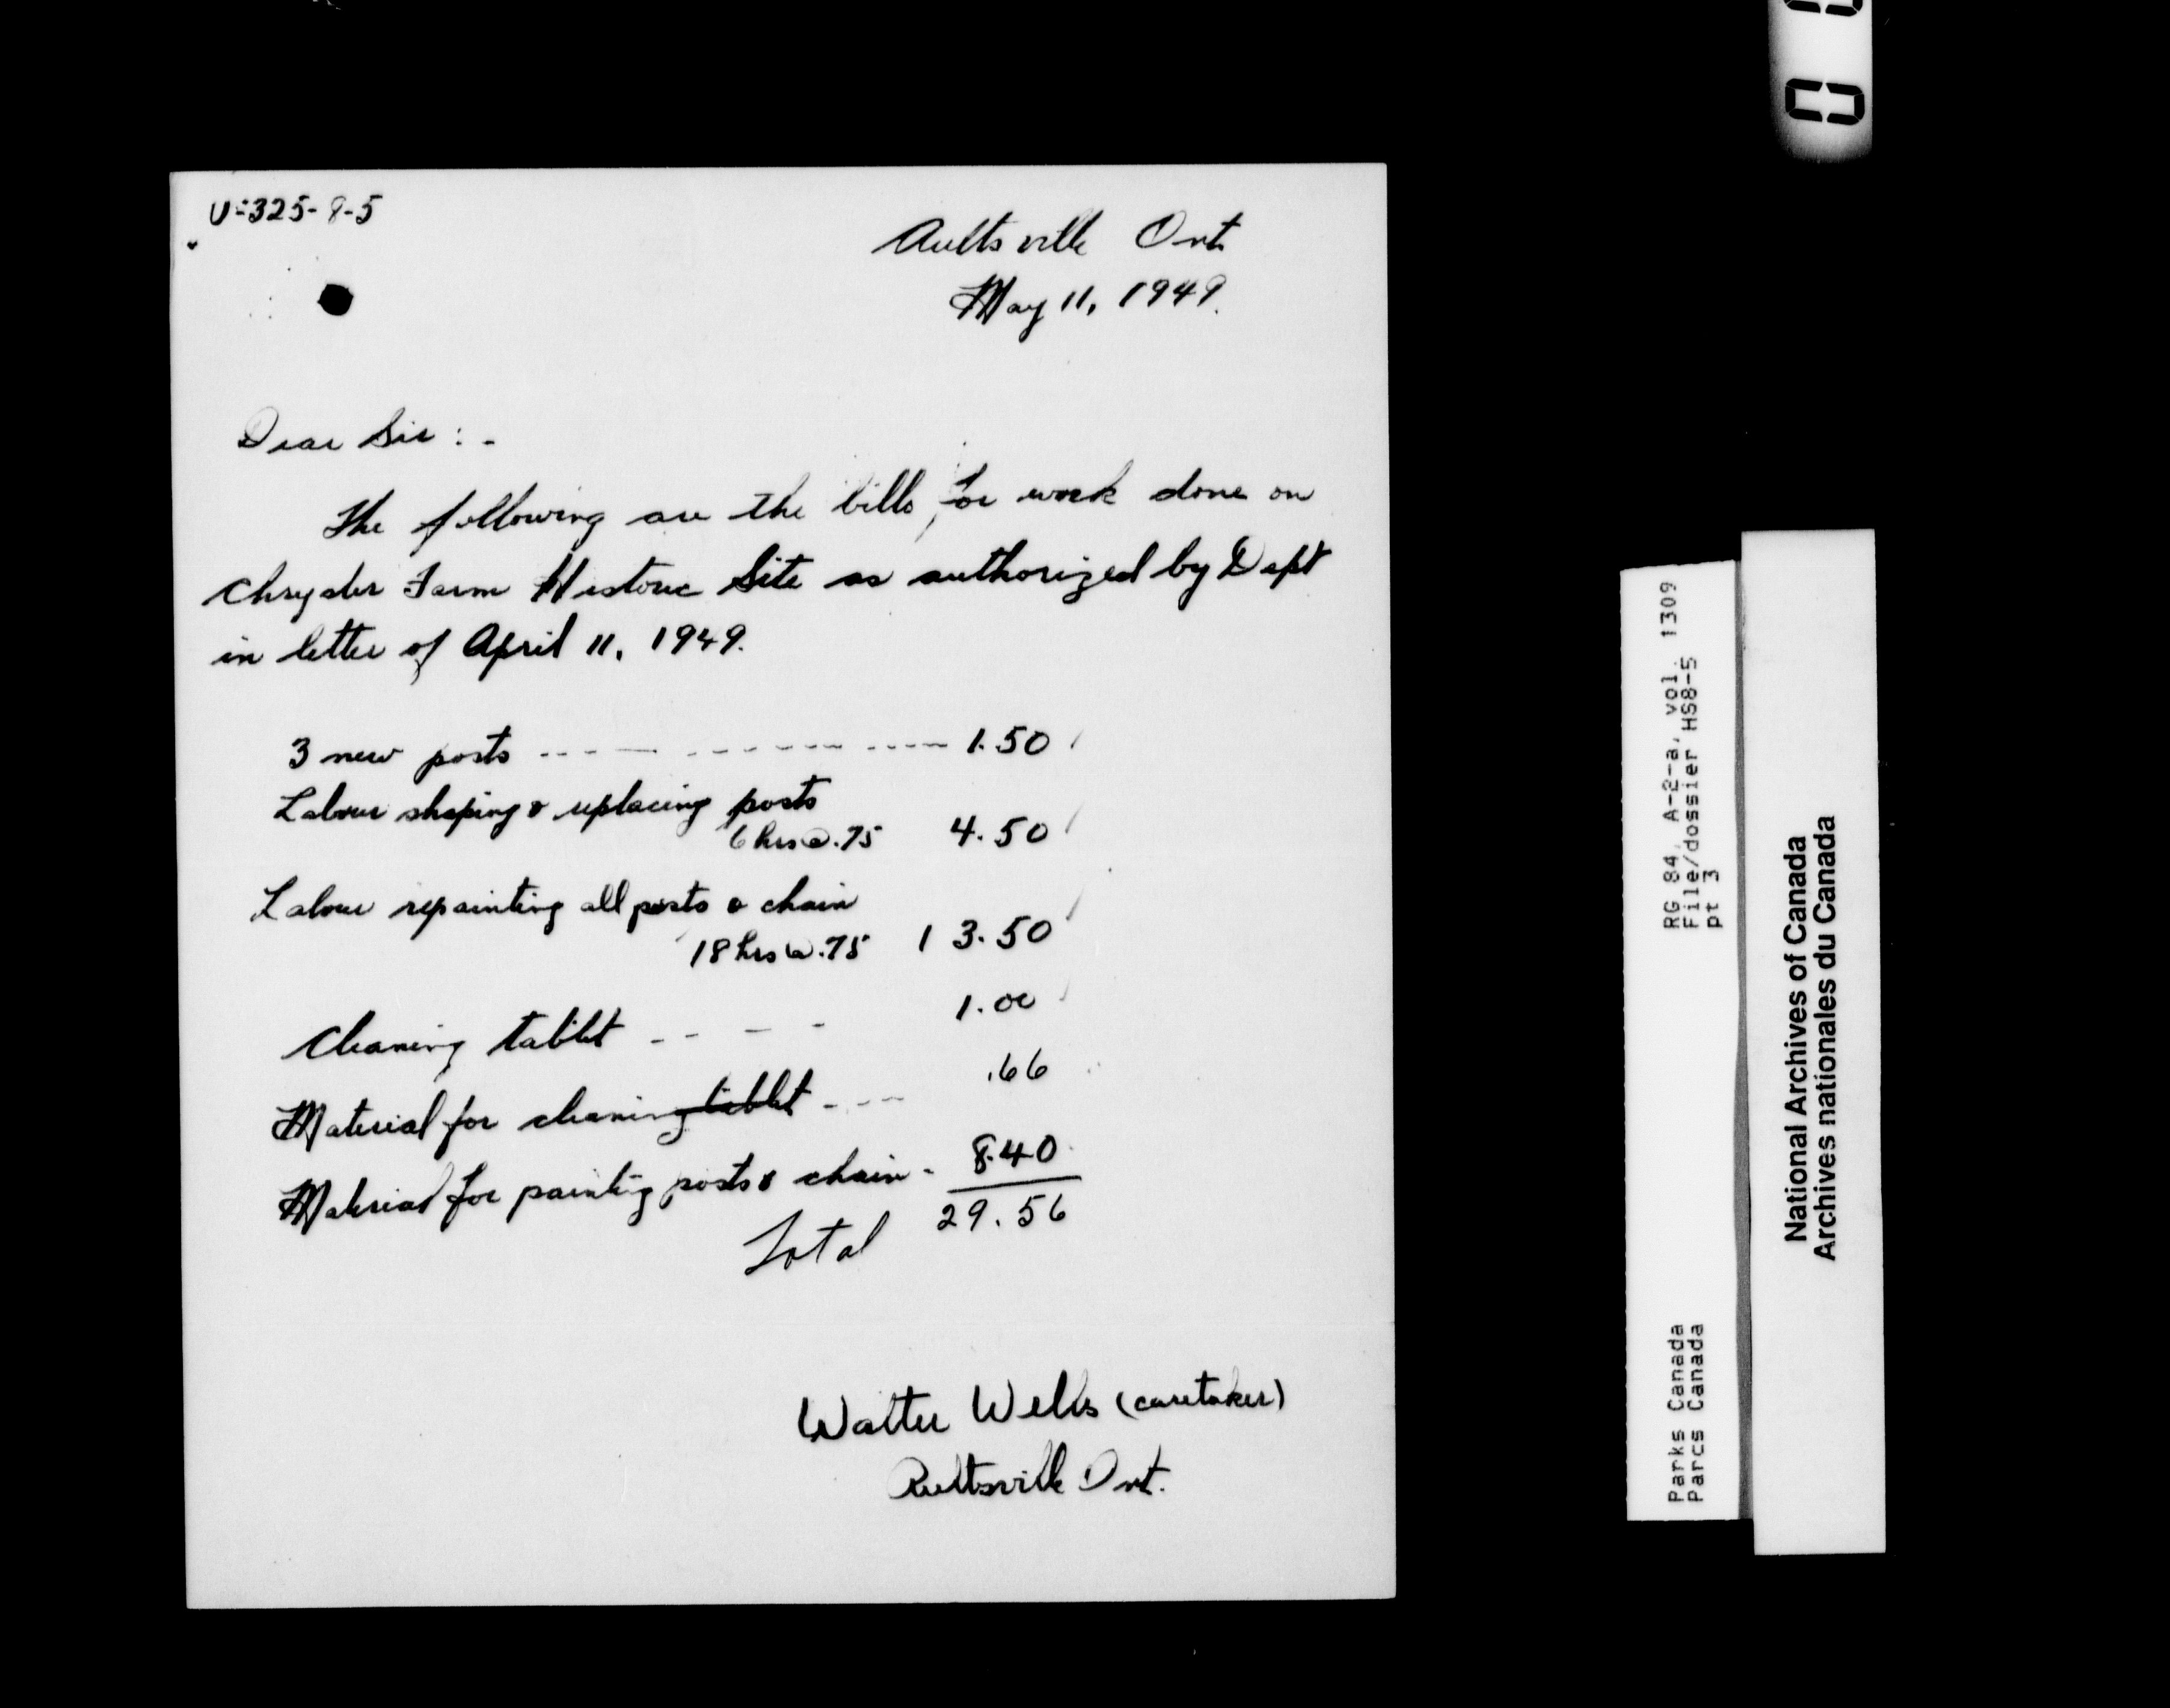 U-325-8-5
Aultsville Ont.
May 11, 1949.
Dear Sir:-
The following are the bills for work done on
Chrysler Farm Historic Site as authorized by Dept
in letter of April 11, 1949.
3 new posts ---- 1.50
Labour shaping & replacing posts
6 hrs @ .75 4.50
Labour repainting all posts & chain
18 hrs @ .75 13.50
Cleaning tablet ---- 1.00
Material for cleaning tablet --- .66
Material for painting posts & chain - 8.40
Total 29.56
Walter Wells (caretaker)
Aultsville Ont.
RG 84, A-2-a, vol. 1309
File/dossier HS8-5
pt 3
Parks Canada
Parcs Canada
National Archives of Canada
Archives nationales du Canada